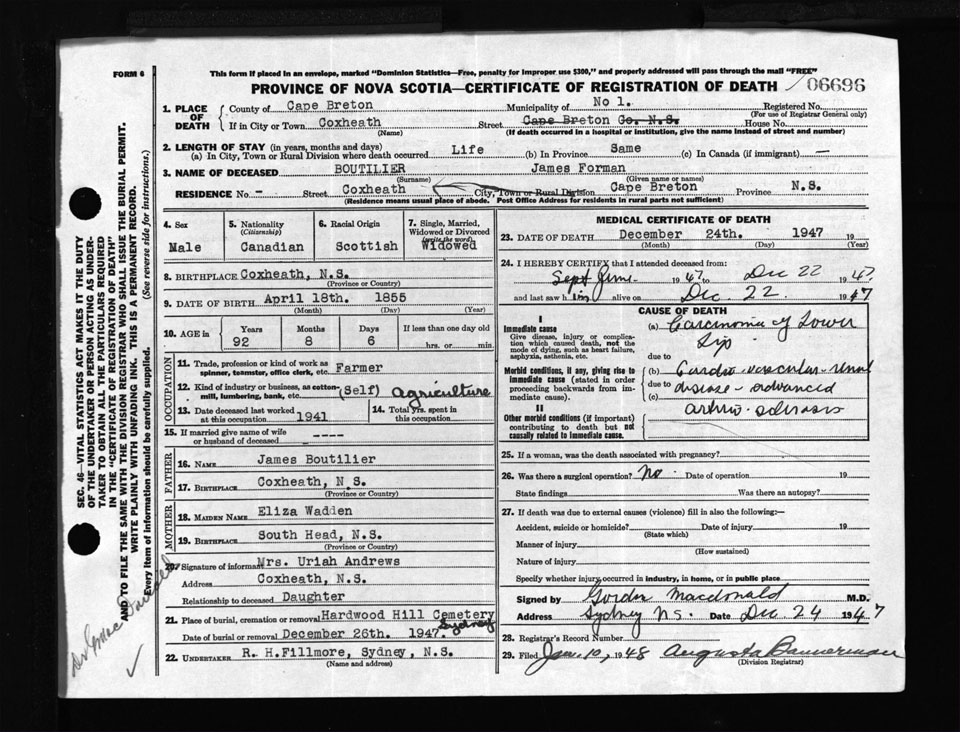 FORM 6
This form if placed in an envelope, marked "Dominion Statistics—Free, penalty for improper use $300," and properly addressed will pass through the mail "FREE"
PROVINCE OF NOVA SCOTIA—CERTIFICATE OF REGISTRATION OF DEATH
06696
1. PLACE OF DEATH
County of Cape Breton Municipality of No 1. Registered No.
(For use of Registrar General only)
If in City or Town Coxheath Street Cape Breton Co. N.S. House No.
(Name) (If death occurred in a hospital or institution, give the name instead of street and number)
2. LENGTH OF STAY (in years, months and days)
(a) In City, Town or Rural Division where death occurred Life (b) In Province Same (c) In Canada (if immigrant) —
3. NAME OF DECEASED BOUTILIER James Forman
(Surname) (Given name or names)
RESIDENCE No – Street Coxheath City, Town or Rural Division Cape Breton Province N.S.
(Residence means usual place of abode. Post Office Address for residents in rural parts not sufficient)
4. Sex
Male
5. Nationality
(Citizenship)
Canadian
6. Racial Origin
Scottish
7. Single, Married, Widowed or Divorced
(write the word)
Widowed
8. BIRTHPLACE Coxheath, N.S.
(Province or Country)
9. DATE OF BIRTH April 18th. 1855
(Month) (Day) (Year)
10. AGE in Years Months Days If less than one day old
92 8 6 hrs. or min.
OCCUPATION
11. Trade, profession or kind of work as spinner, teamster, office clerk, etc. Farmer
12. Kind of industry or business, as cotton-mill, lumbering, bank, etc. (Self) agriculture
13. Date deceased last worked at this occupation 1941
14. Total yrs. spent in this occupation
15. If married give name of wife or husband of deceased ----
FATHER
16. NAME James Boutilier
17. BIRTHPLACE Coxheath, N.S.
(Province or Country)
MOTHER
18. MAIDEN NAME Eliza Wadden
19. BIRTHPLACE South Head, N.S.
(Province or Country)
20. Signature of informant Mrs. Uriah Andrews
Address Coxheath, N.S.
Relationship to deceased Daughter
21. Place of burial, cremation or removal Hardwood Hill Cemetery
Sydney
Date of burial or removal December 26th. 1947.
22. UNDERTAKER R. H. Fillmore, Sydney, N.S.
(Name and address)
MEDICAL CERTIFICATE OF DEATH
23. DATE OF DEATH December 24th. 1947 19
(Month) (Day) (Year)
24. I HEREBY CERTIFY that I attended deceased from:
1947 to Dec 22 1947
and last saw him alive on Dec. 22 1947
CAUSE OF DEATH
I
Immediate cause
Give disease, injury or complication which caused death, not the mode of dying, such as heart failure, asphyxia, asthenia, etc.
(a) Carcinoma of Lower
Lip
due to
Morbid conditions, if any, giving rise to immediate cause (stated in order proceeding backwards from immediate cause).
(b) Cardio-vascular-renal
due to disease - advanced
(c) arterio-sclerosis
II
Other morbid conditions (if important) contributing to death but not causally related to immediate cause.
25. If a woman, was the death associated with pregnancy?
26. Was there a surgical operation? No. Date of operation 19
State findings Was there an autopsy?
27. If death was due to external causes (violence) fill in also the following:—
Accident, suicide or homicide? Date of injury 19
(State which)
Manner of injury
(How sustained)
Nature of injury
Specify whether injury occurred in industry, in home, or in public place
Signed by Gordon Macdonald M.D.
Address Sydney N.S. Date Dec 24 1947
28. Registrar's Record Number
29. Filed Jan. 10, 1948 Augusta Bannerman
(Division Registrar)
SEC. 46—VITAL STATISTICS ACT MAKES IT THE DUTY
OF THE UNDERTAKER OR PERSON ACTING AS UNDER-
TAKER TO OBTAIN ALL THE PARTICULARS REQUIRED
IN THE "CERTIFICATE OF REGISTRATION OF DEATH"
AND TO FILE THE SAME WITH THE DIVISION REGISTRAR WHO SHALL ISSUE THE BURIAL PERMIT.
WRITE PLAINLY WITH UNFADING INK. THIS IS A PERMANENT RECORD.
Every item of information should be carefully supplied. (See reverse side for instructions.)